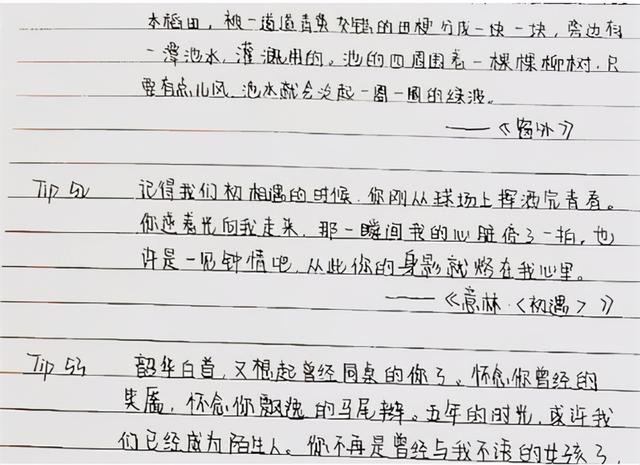 本稻田，被一道道青黄交错的田埂分成一块一块，旁边有
一潭池水，灌溉用的。池的四周围着一棵棵柳树，只
要有点儿风，池水就会泛起一圈一圈的绿波。
——《窗外》
Tip 52 记得我们初相遇的时候，你刚从球场上挥洒完青春。
你逆着光向我走来，那一瞬间我的心脏停了一拍，也
许是一见钟情吧，从此你的身影就烙在我心里。
——《意林·〈初遇〉》
Tip 53 韶华白首，又想起曾经同桌的你了。怀念你曾经的
笑靥，怀念你飘逸的马尾辫。五年的时光，或许我
们已经成为陌生人。你不再是曾经与我不语的女孩了，